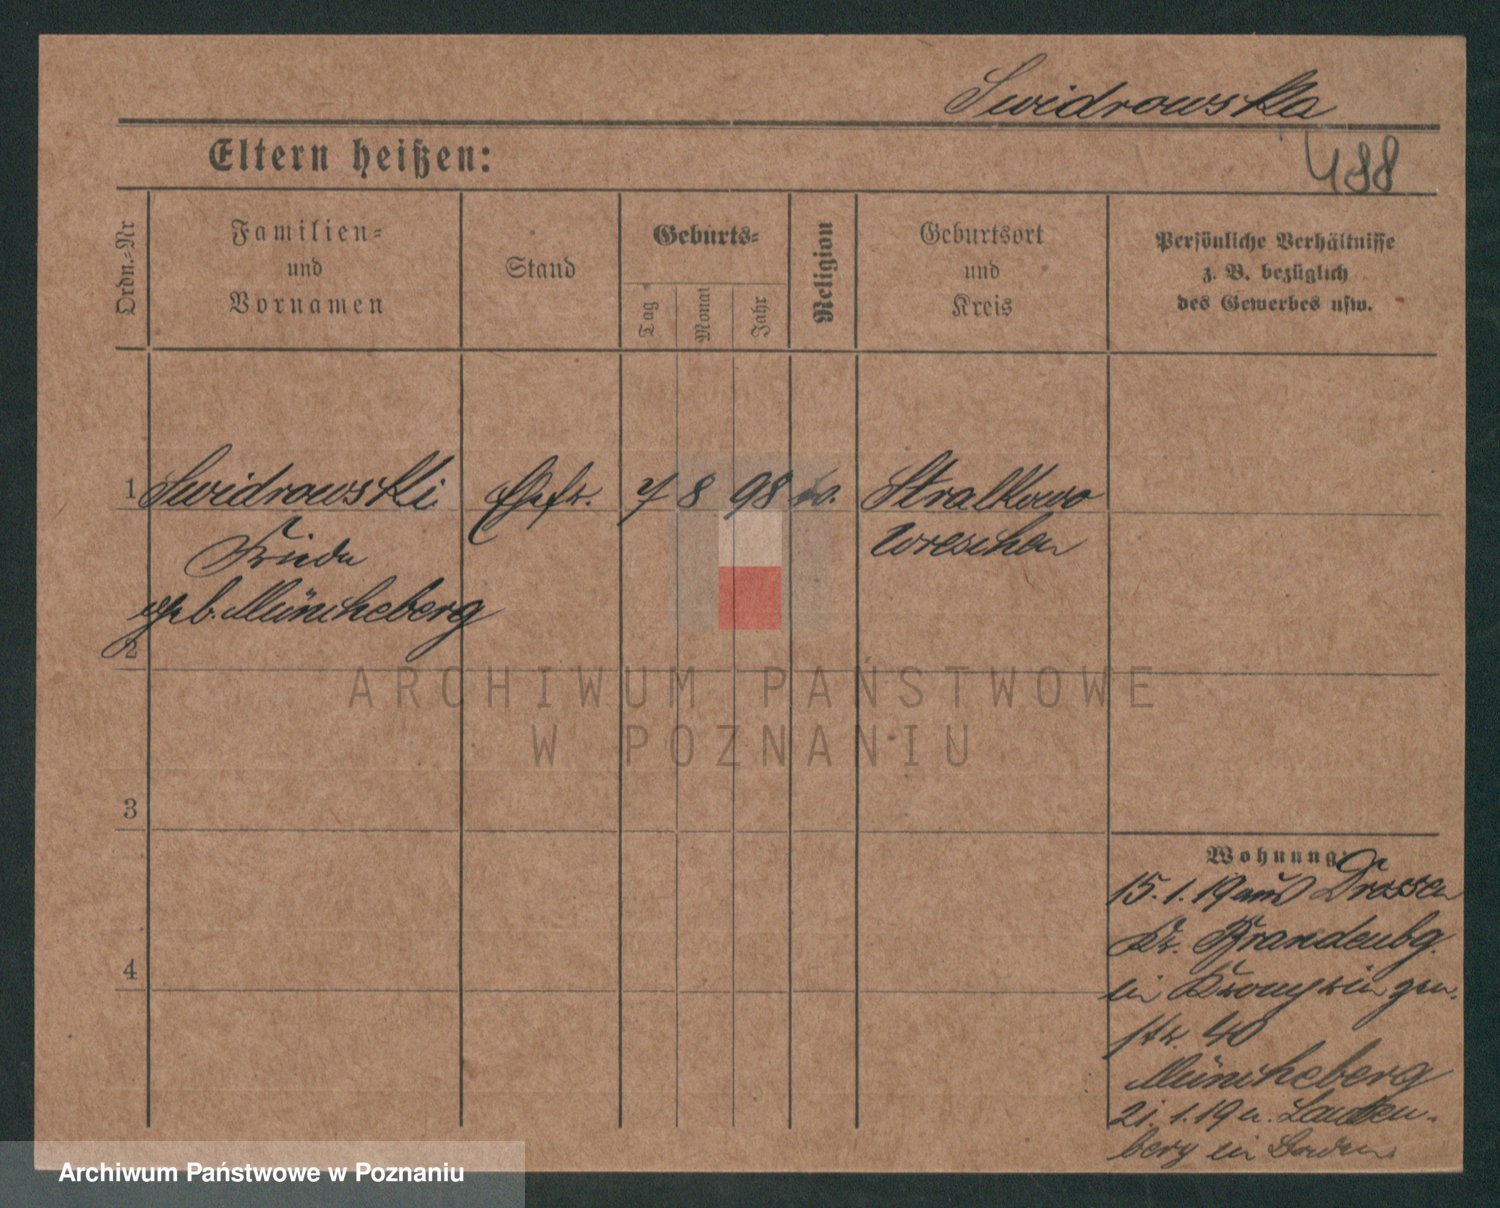 Swidrowska
Eltern heißen:
488
Ordn.-Nr
Familien-
und
Vornamen
Stand
Geburts-
Tag
Monat
Jahr
Religion
Geburtsort
und
Kreis
Persönliche Verhältnisse
z. B. bezüglich
des Gewerbes usw.
1 Swidrowski Ehefr. 7 8 98 Stralkowo
Frieda Wreschen
geb. Müncheberg
2
ARCHIWUM PAŃSTWOWE
W POZNANIU
3
Wohnung:
15.1.19 aus Drossen
Kr. Brandenbg.
in Kronprinzen
str. 40
4
Müncheberg
21.1.19 n. Lauden-
berg in Baden
Archiwum Państwowe w Poznaniu